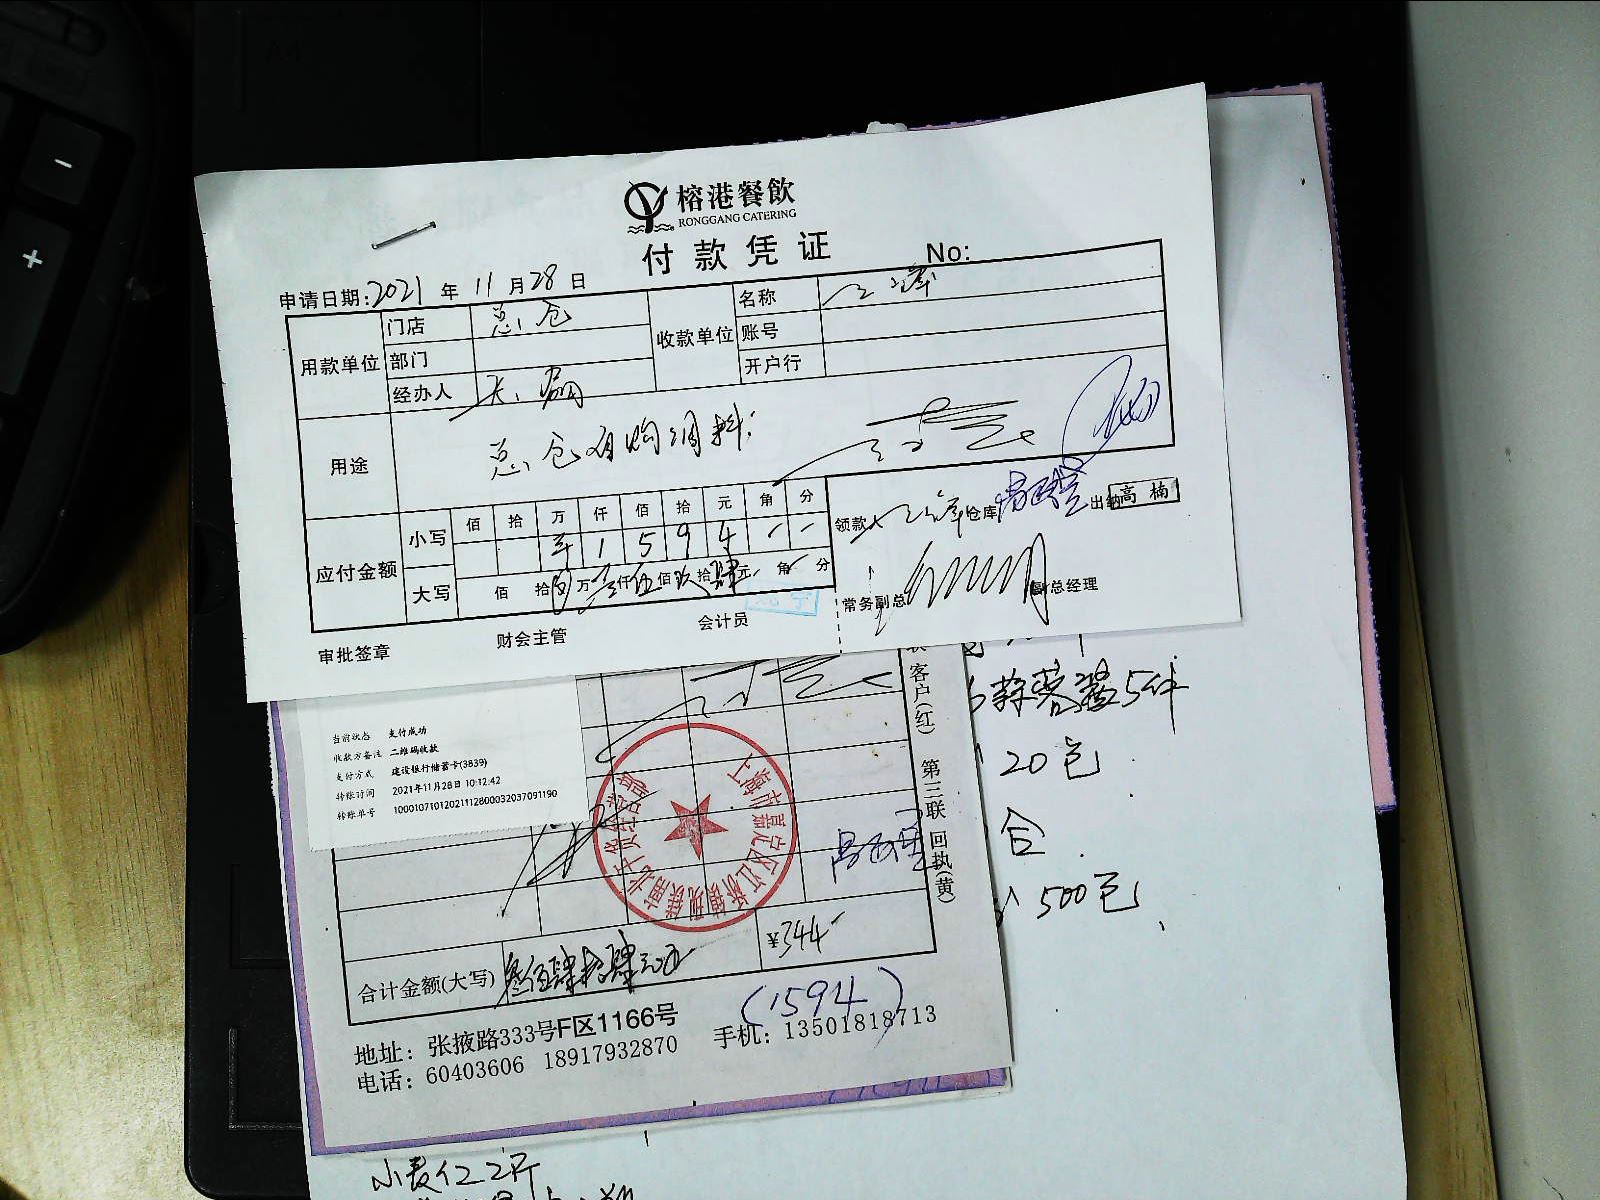 榕港餐飲
RONGGANG CATERING
付款凭证
No:
申请日期:2021年11月28日
用款单位 门店 总仓 收款单位 名称
部门 账号
经办人 开户行
用途 总仓采购调料
应付金额 小写 佰 拾 万 仟 佰 拾 元 角 分
¥ 1 5 9 4 - -
大写 佰 拾 万 壹仟伍佰玖拾肆元 角 分
领款 仓库 出纳 高楠
常务副总 副总经理
审批签章 财会主管 会计员
当前状态 支付成功
收款方备注 二维码收款
支付方式 建设银行储蓄卡(3839)
转账时间 2021年11月28日 10:12:42
转账单号 10001071012021112800032037091190
客户(红) 第三联 回执(黄)
合计金额(大写) 叁佰肆拾肆元正 ¥344-
(1594)
地址: 张掖路333号F区1166号 手机: 13501818713
电话: 60403606 18917932870
蒜蓉酱5件
20包
合
500包
小麦仁2斤